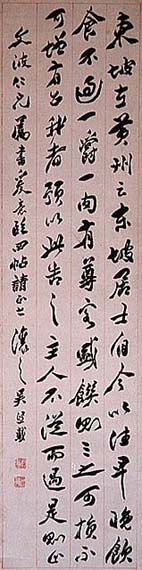 東坡在黃州云東坡居士自今以往早晚飲
食不過一爵一肉有尊客盛饌則三之可損不
可增有召我者預以此告之主人不從而過是則止
文波仁兄屬書 臨四帖請正之 讓之吳熙載